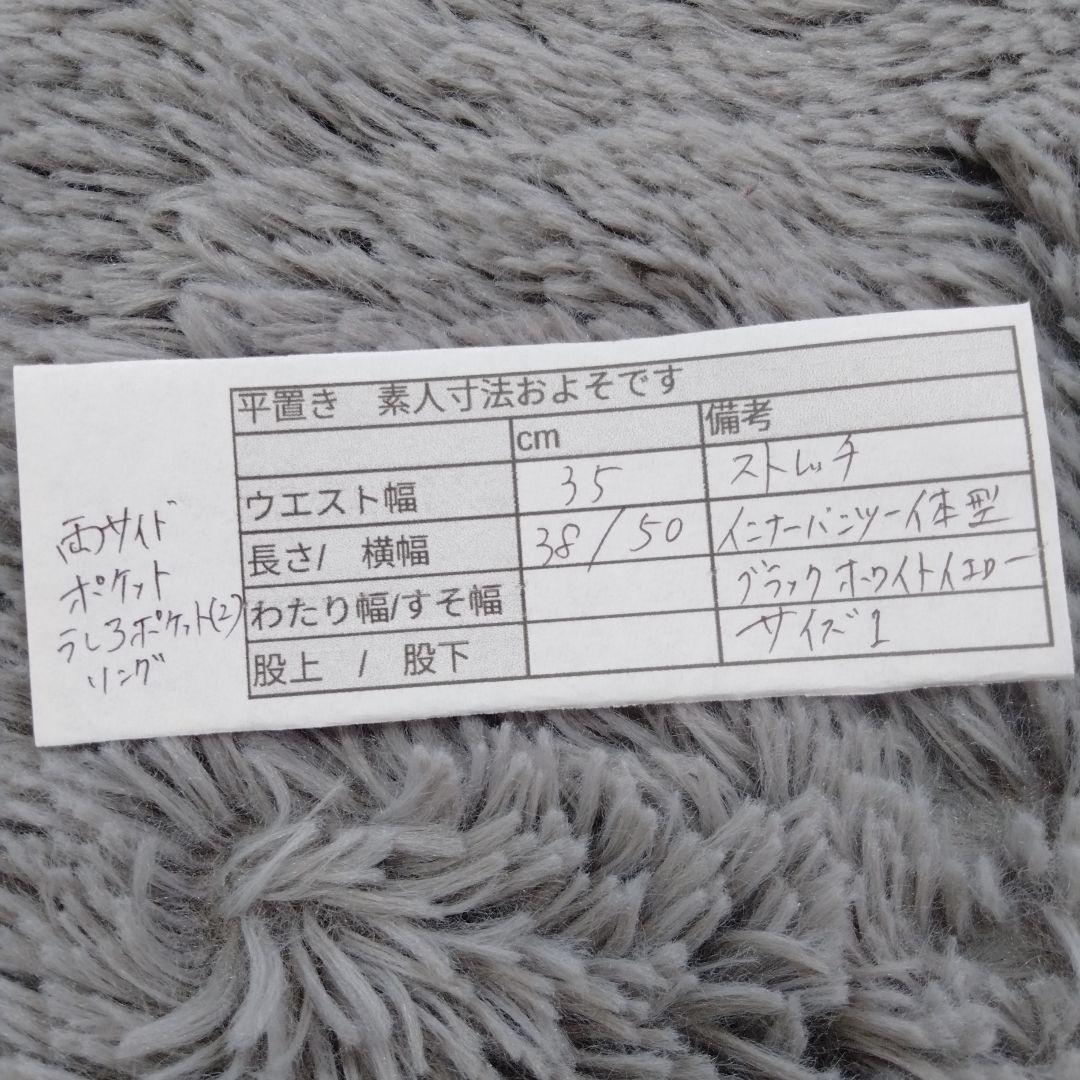 平置き　素人寸法およそです
cm 備考
ウエスト幅 35 ストレッチ
長さ/　横幅 38/50 インナーパンツ一体型
わたり幅/すそ幅 ブラックホワイトイエロー
股上　/　股下 サイズ1
両サイド
ポケット
うしろポケット(2)
リング